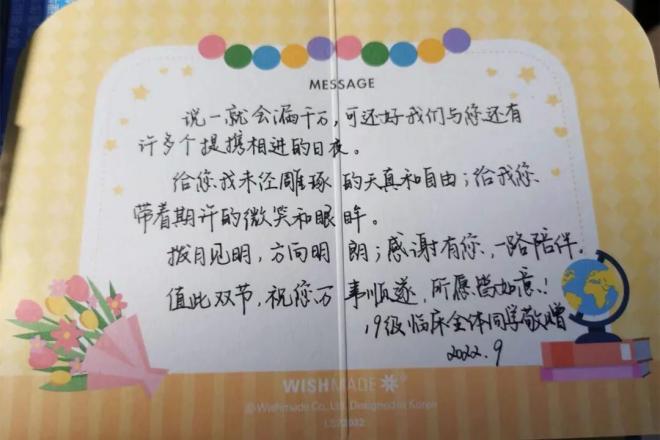 MESSAGE
说一就会漏千万,可还好我们与您还有
许多个提携相进的日夜。
给您我未经雕琢的天真和自由;给我您
带着期许的微笑和眼眸。
拨月见明,方向明朗;感谢有您,一路陪伴。
值此双节,祝您万事顺遂,所愿皆如意!
19级临床全体同学敬赠
2022.9
WISHMADE
©Wishmade Co., Ltd. Designed in Korea